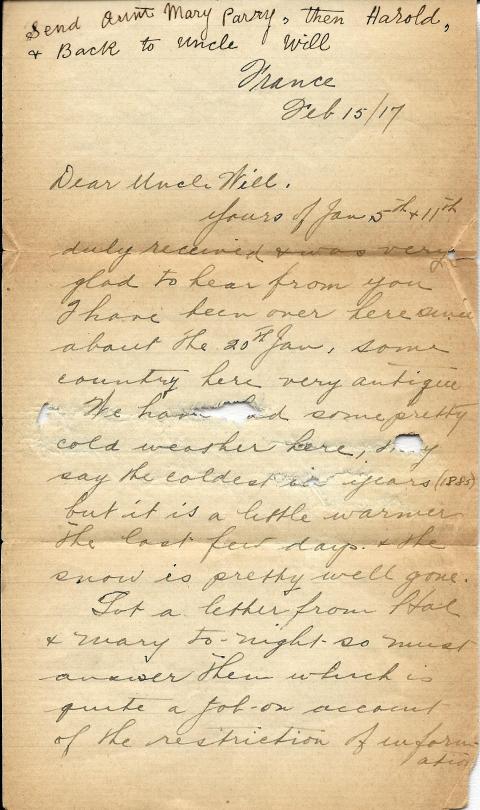 Send Aunt Mary Parry, then Harold,
& Back to Uncle Will
France
Feb 15/17
Dear Uncle Will.
Yours of Jan 5th & 11th
duly received & was very
glad to hear from you
I have been over here since
about the 20th Jan, some
country here very antique
We have had some pretty
cold weather here, they
say the coldest in years (1885)
but it is a little warmer
the last few days. & the
snow is pretty well gone.
Got a letter from Hal
& Mary to-night so must
answer them which is
quite a job on account
of the restriction of inform
ation